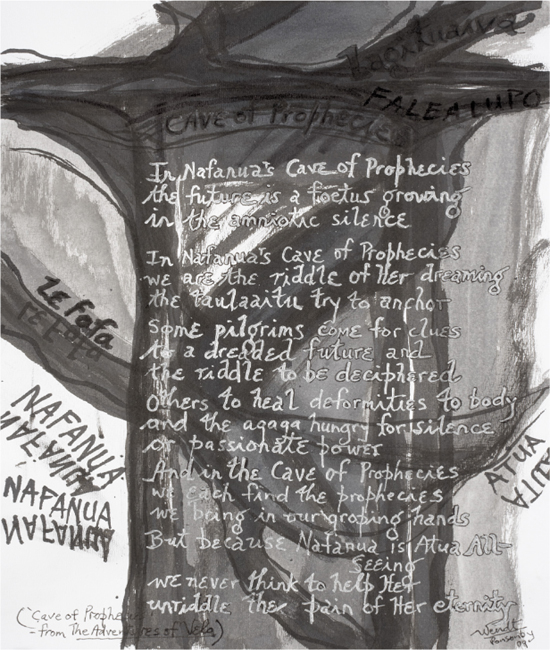 Lagituaiva
FALEALUPO
CAVE of Prophecies
In Nafanua's Cave of Prophecies
the future is a foetus growing
in the amniotic silence
In Nafanua's Cave of Prophecies
we are the riddle of her dreaming
the taulaaitu try to anchor
Some pilgrims come for clues
to a dreaded future and
the riddle to be deciphered
Others to heal deformities to body
and the agaga hungry for silence
or passionate power
And in the Cave of Prophecies
we each find the prophecies
we bring in our groping hands
But because Nafanua is Atua All-
Seeing
we never think to help Her
unriddle the pain of Her eternity
Le Fafa
Le Fafa
NAFANUA
NAFANUA
NAFANUA
NAFANUA
ATUA
ATUA
("Cave of Prophecies
-from The Adventures of Vela)
Wendt
Ponsonby
09-